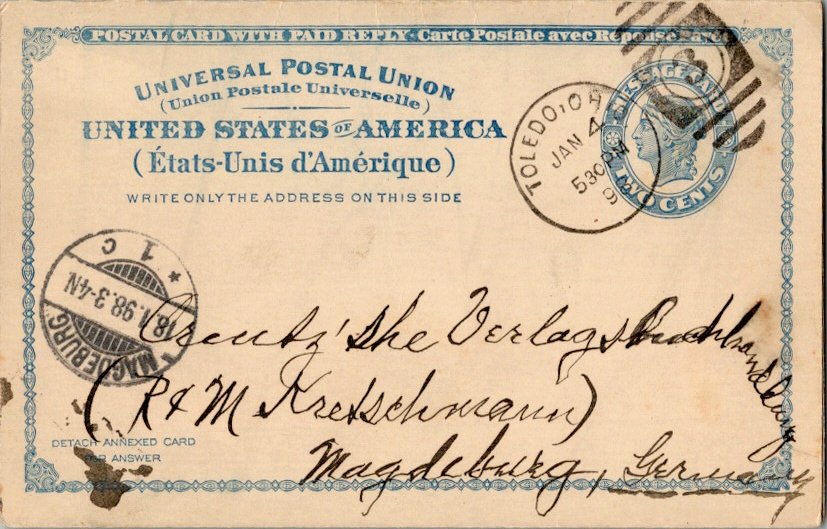 POSTAL CARD WITH PAID REPLY-Carte Postale avec Réponse Payée
UNIVERSAL POSTAL UNION
(Union Postale Universelle)
UNITED STATES OF AMERICA
(États-Unis d'Amérique)
WRITE ONLY THE ADDRESS ON THIS SIDE
TOLEDO, OH
JAN 4
530PM
MESSAGE CARD
TWO CENTS
3
MAGDEBURG
18.1.98.3-4N
* 1 c
Creutz'she Verlagsbuchhandlung
(R & M Kretschmann)
Magdeburg, Germany
DETACH ANNEXED CARD
FOR ANSWER